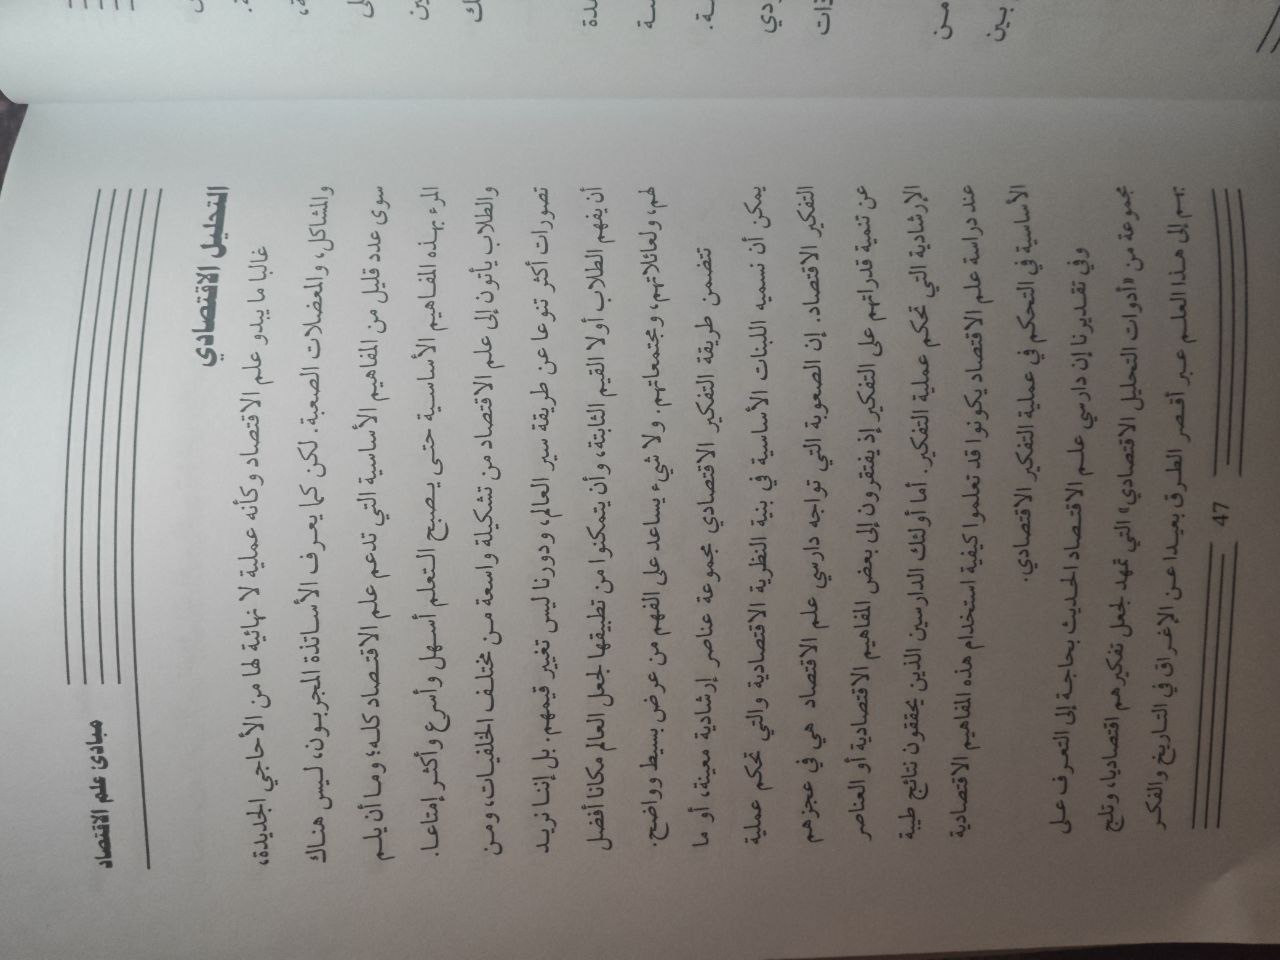 مبادئ علم الاقتصاد
التحليل الاقتصادي
غالبا ما يبدو علم الاقتصاد وكأنه عملية لا نهائية لها من الأحاجي الجديدة،
والمشاكل، والمعضلات الصعبة. لكن كما يعرف الأساتذة المجربون، ليس هناك
سوى عدد قليل من المفاهيم الأساسية التي تدعم علم الاقتصاد كله؛ وما أن يلم
المرء بهذه المفاهيم الأساسية حتى يصبح التعلم أسهل وأسرع وأكثر إمتاعا.
والطلاب يأتون إلى علم الاقتصاد من تشكيلة واسعة من مختلف الخلفيات، ومن
تصورات أكثر تنوعا عن طريقة سير العالم، ودورنا ليس تغيير قيمهم. بل إننا نريد
أن يفهم الطلاب أولا القيم الثابتة، وأن يتمكنوا من تطبيقها لجعل العالم مكانا أفضل
لهم، ولعائلاتهم، ومجتمعاتهم. ولا شيء يساعد على الفهم من عرض بسيط وواضح.
تتضمن طريقة التفكير الاقتصادي مجموعة عناصر إرشادية معينة، أو ما
يمكن أن نسميه اللبنات الأساسية في بنية النظرية الاقتصادية والتي تحكم عملية
التفكير الاقتصاد. إن الصعوبة التي تواجه دارسي علم الاقتصاد هي في عجزهم
عن تنمية قدراتهم على التفكير إذ يفتقرون إلى بعض المفاهيم الاقتصادية أو العناصر
الإرشادية التي تحكم عملية التفكير. أما أولئك الدارسين الذين يحققون نتائج طيبة
عند دراسة علم الاقتصاد يكونوا قد تعلموا كيفية استخدام هذه المفاهيم الاقتصادية
الأساسية في التحكم في عملية التفكير الاقتصادي.
وفي تقديرنا إن دارسي علم الاقتصاد الحديث بحاجة إلى التعرف على
مجموعة من «أدوات التحليل الاقتصادي» التي تمهد لجعل تفكيرهم اقتصاديا، وتلج
بهم إلى هذا العلم عبر أقصر الطرق بعيدا عن الإغراق في التاريخ والفكر
47